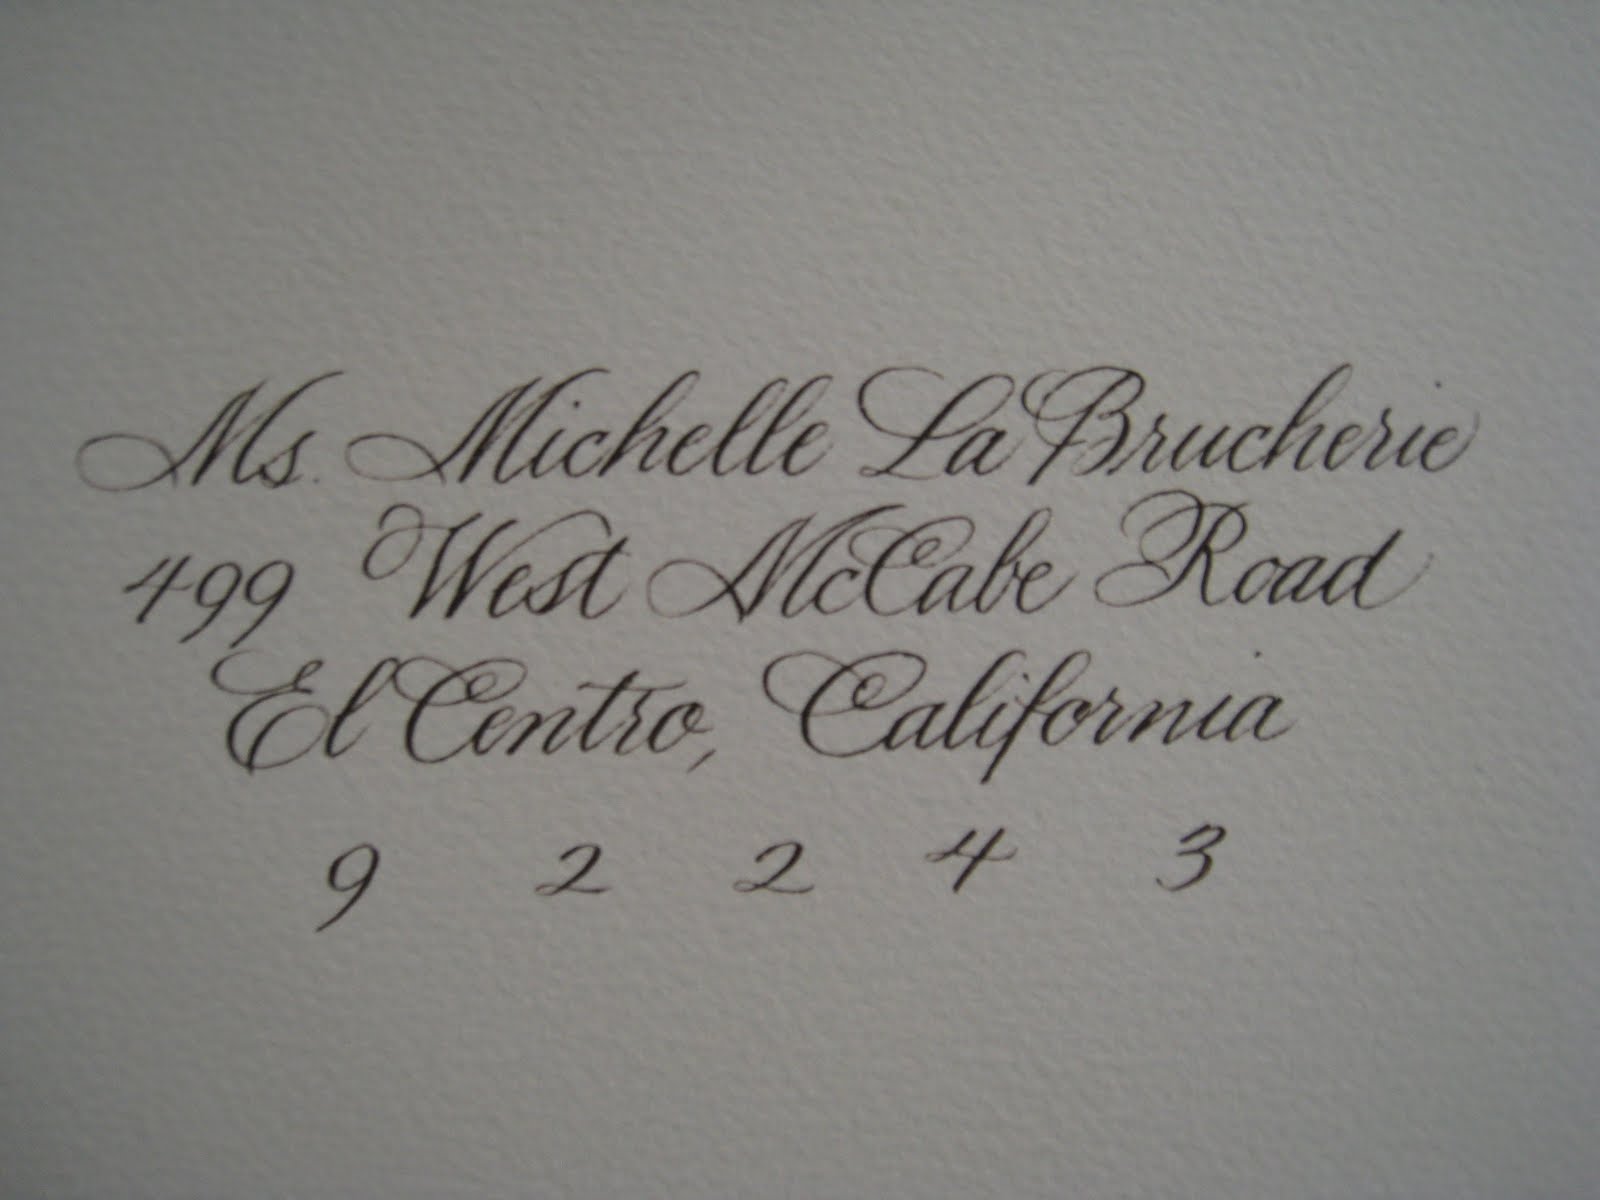 Ms. Michelle La Brucherie
499 West McCabe Road
El Centro, California
9 2 2 4 3